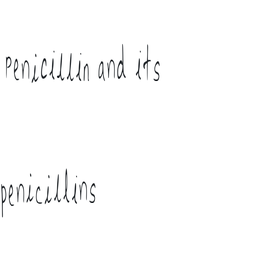 Penicillin and its
penicillins